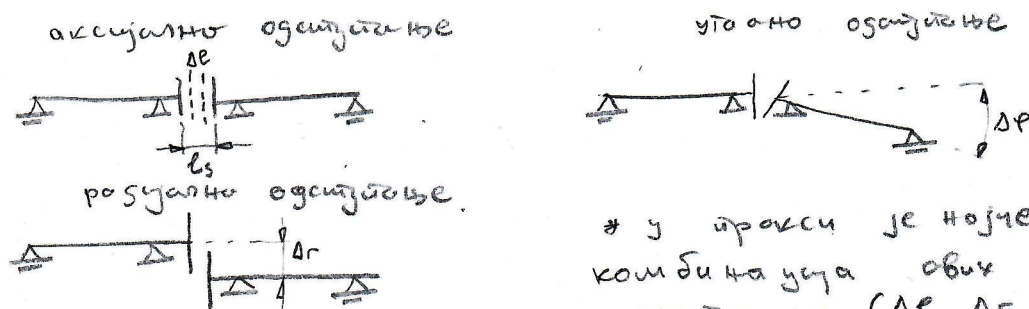 аксијално одступање
Δℓ
ℓs
радијално одступање
Δr
угаоно одступање
Δφ
* у пракси је најче
комбинација ових
(Δℓ, Δr